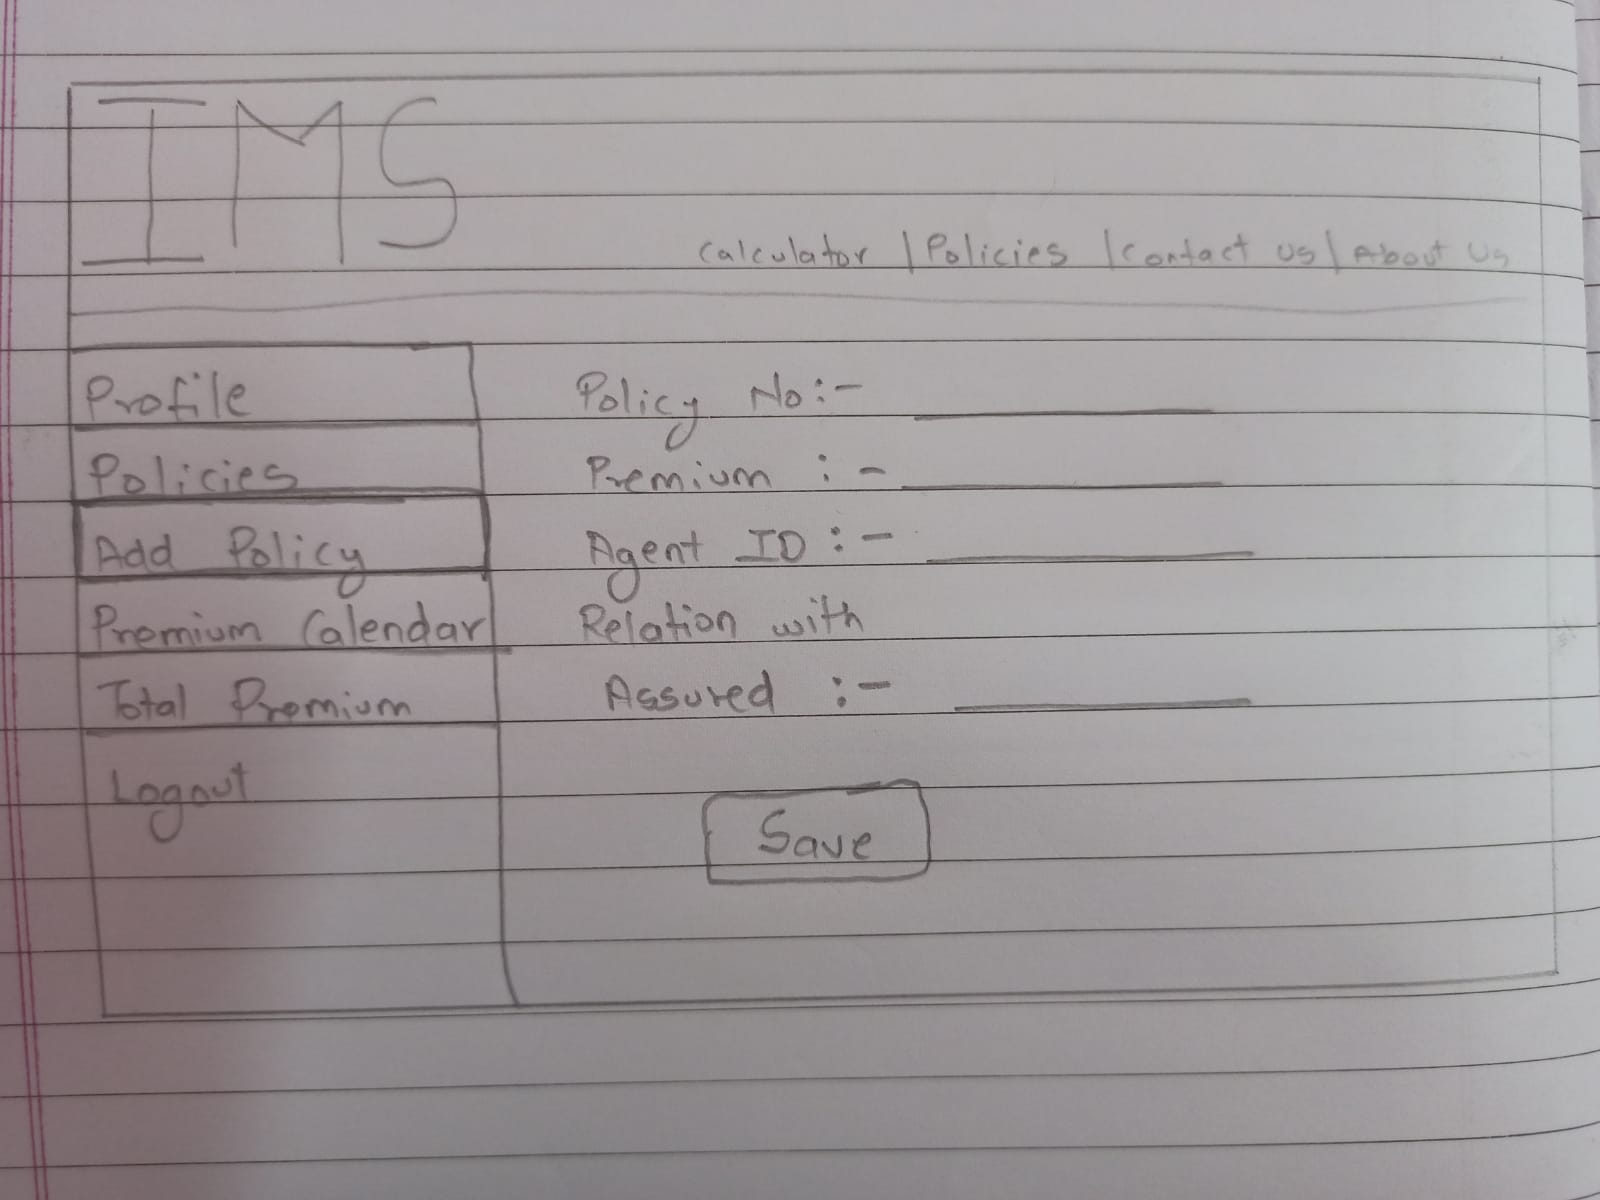 IMS
Calculator | Policies | Contact Us | About Us
Profile
Policies
Add Policy
Premium Calendar
Total Premium
Logout
Policy No:-
Premium :-
Agent ID :-
Relation with
Assured :-
Save